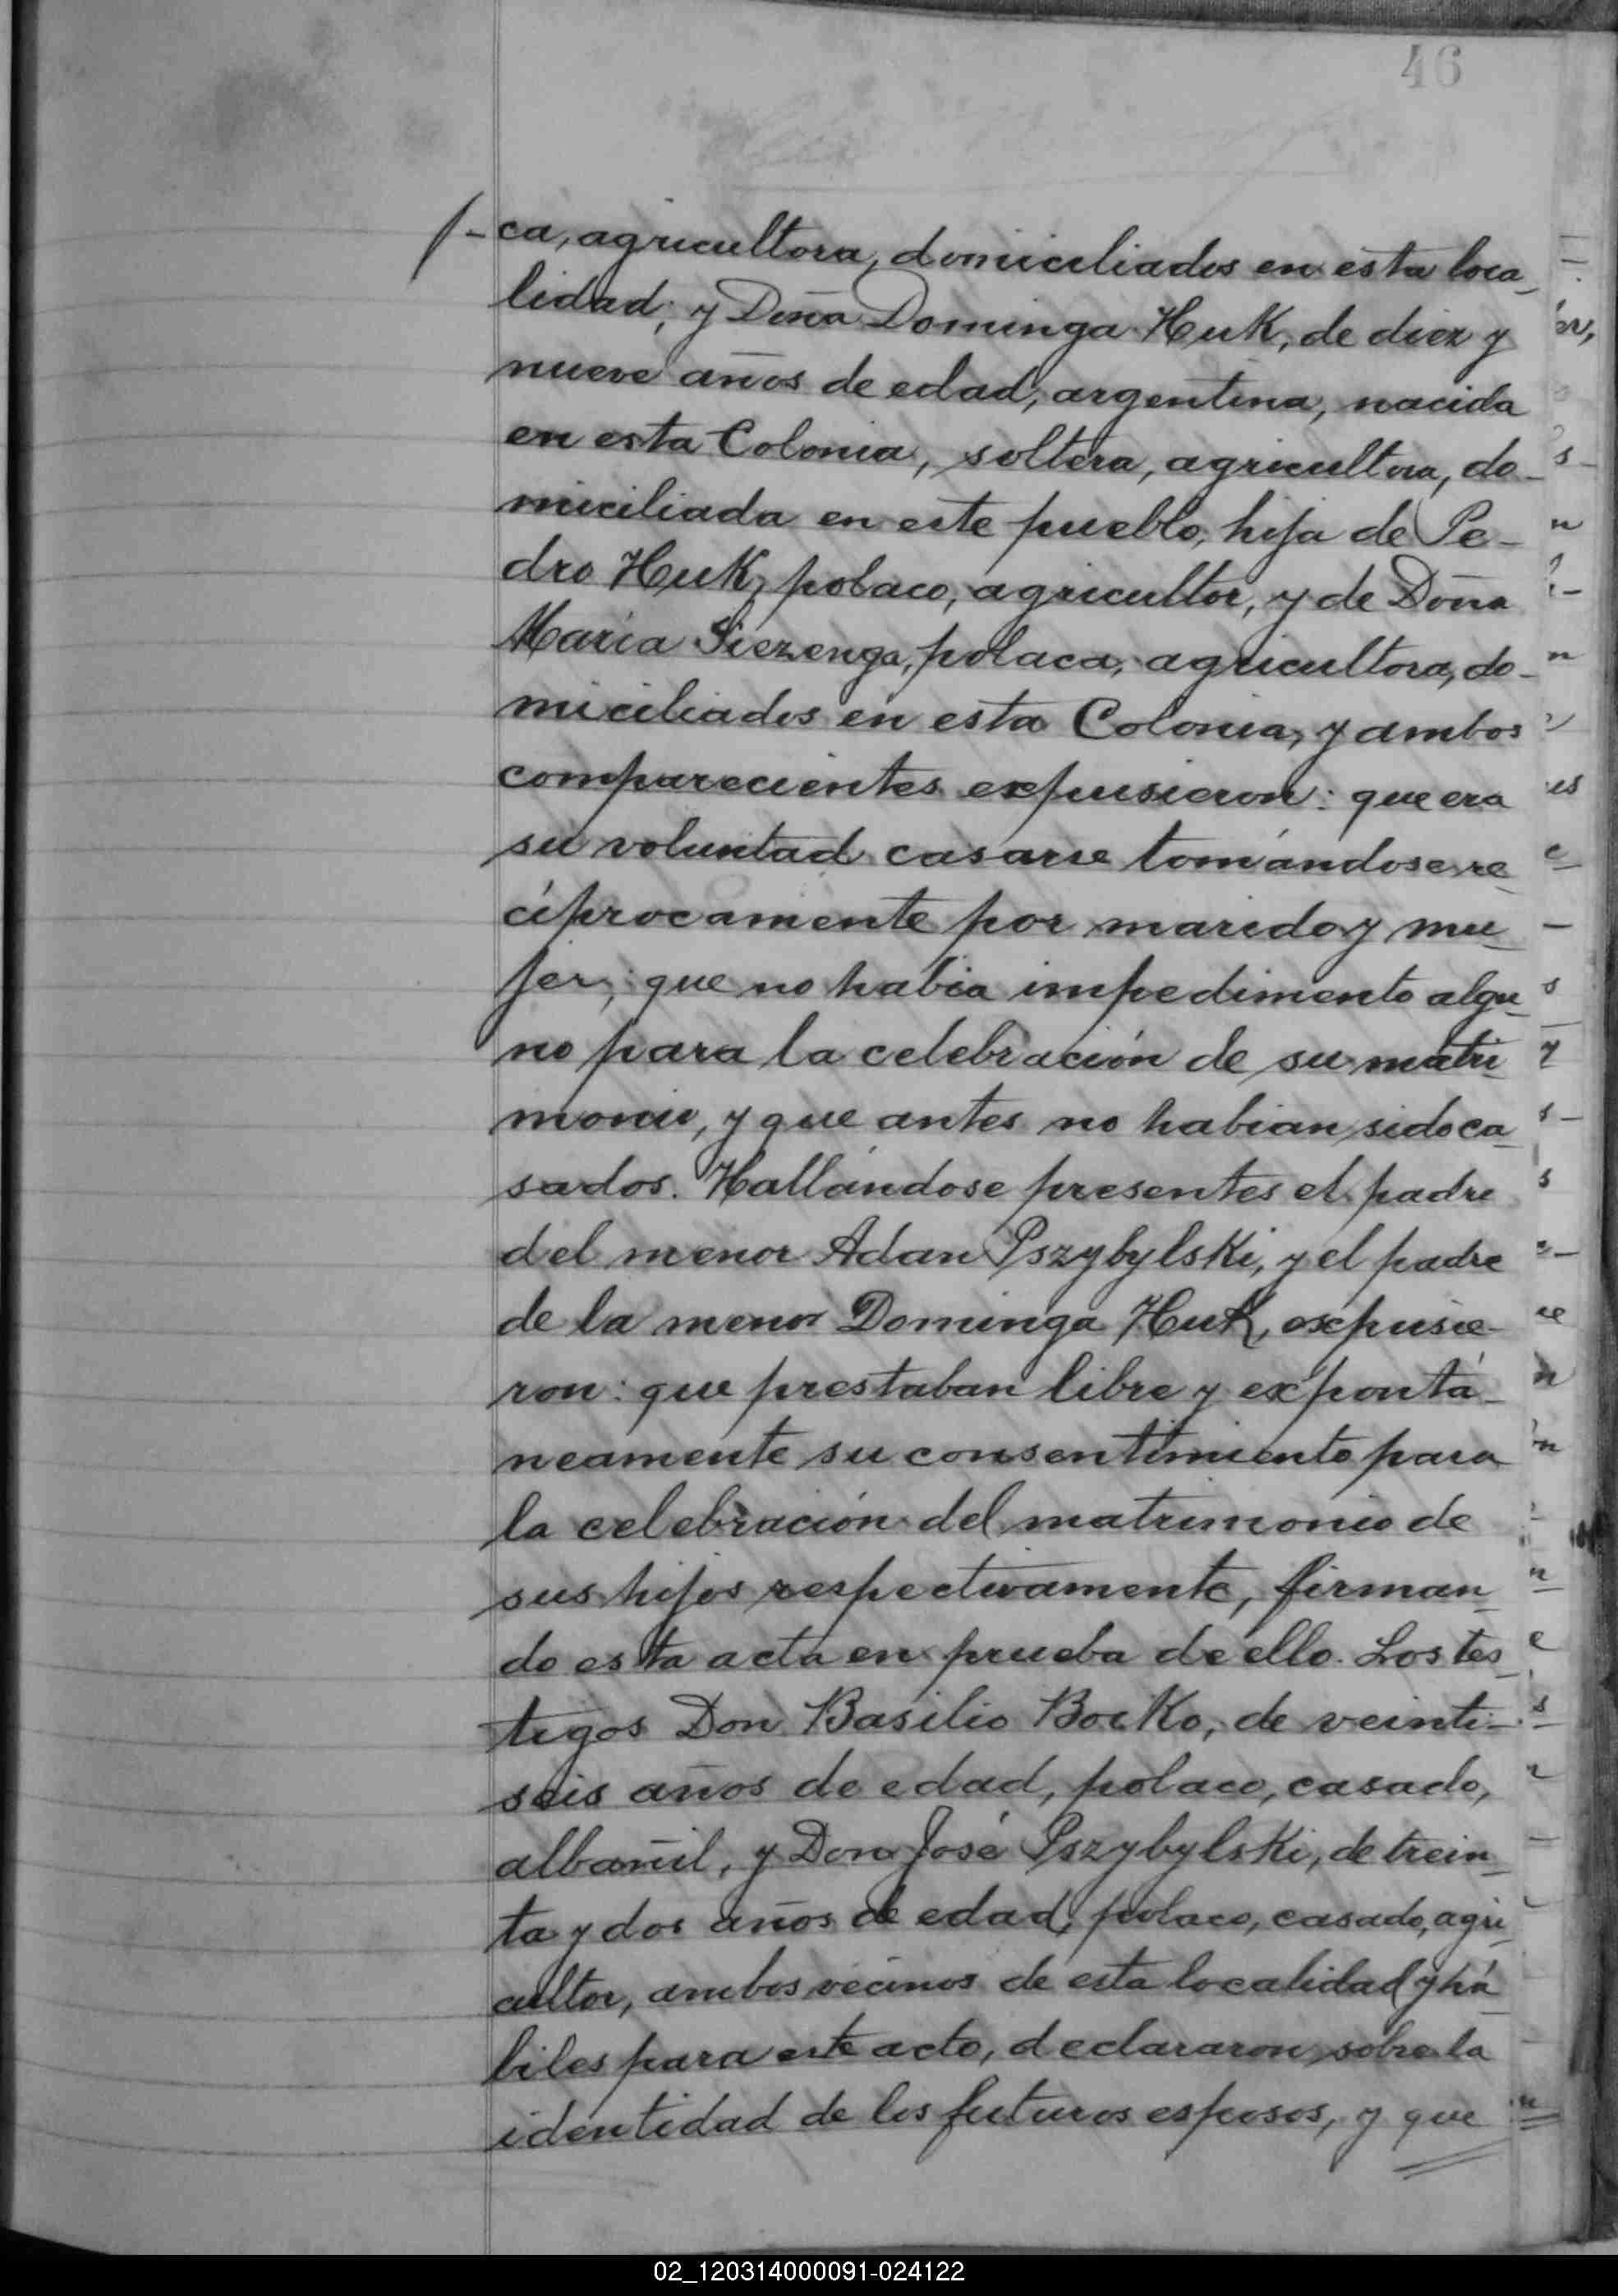 46
/-ca, agricultora, domiciliados en esta loca_
lidad; y Doña Dominga Huk, de diez y
nueve años de edad, argentina, nacida
en esta Colonia, soltera, agricultora, do_
miciliada en este pueblo, hija de Pe-
dro Huk, polaco, agricultor, y de Doña
María Siezenga, polaca, agricultora, do-
miciliados en esta Colonia, y ambos
comparecientes expusieron: que era
su voluntad casarse tomándose re_
cíprocamente por marido y mu_
jer; que no habia impedimento algu_
no para la celebración de su matri_
monio, y que antes no habian sido ca_
sados. Hallándose presentes el padre
del menor Adan Pszybylski, y el padre
de la menor Dominga Huk, expusie-
ron: que prestaban libre y expontá_
neamente su consentimiento para
la celebración del matrimonio de
sus hijos respectivamente, firman_
do esta acta en prueba de ello. Los tes_
tigos Don Basilio Bocko, de veinti-
seis años de edad, polaco, casado,
albañil, y Don José Pszybylski, de trein_
ta y dos años de edad, polaco, casado, agri_
cultor, ambos vecinos de esta localidad y há_
biles para este acto, declararon sobre la
identidad de los futuros esposos, y que
02_120314000091-024122